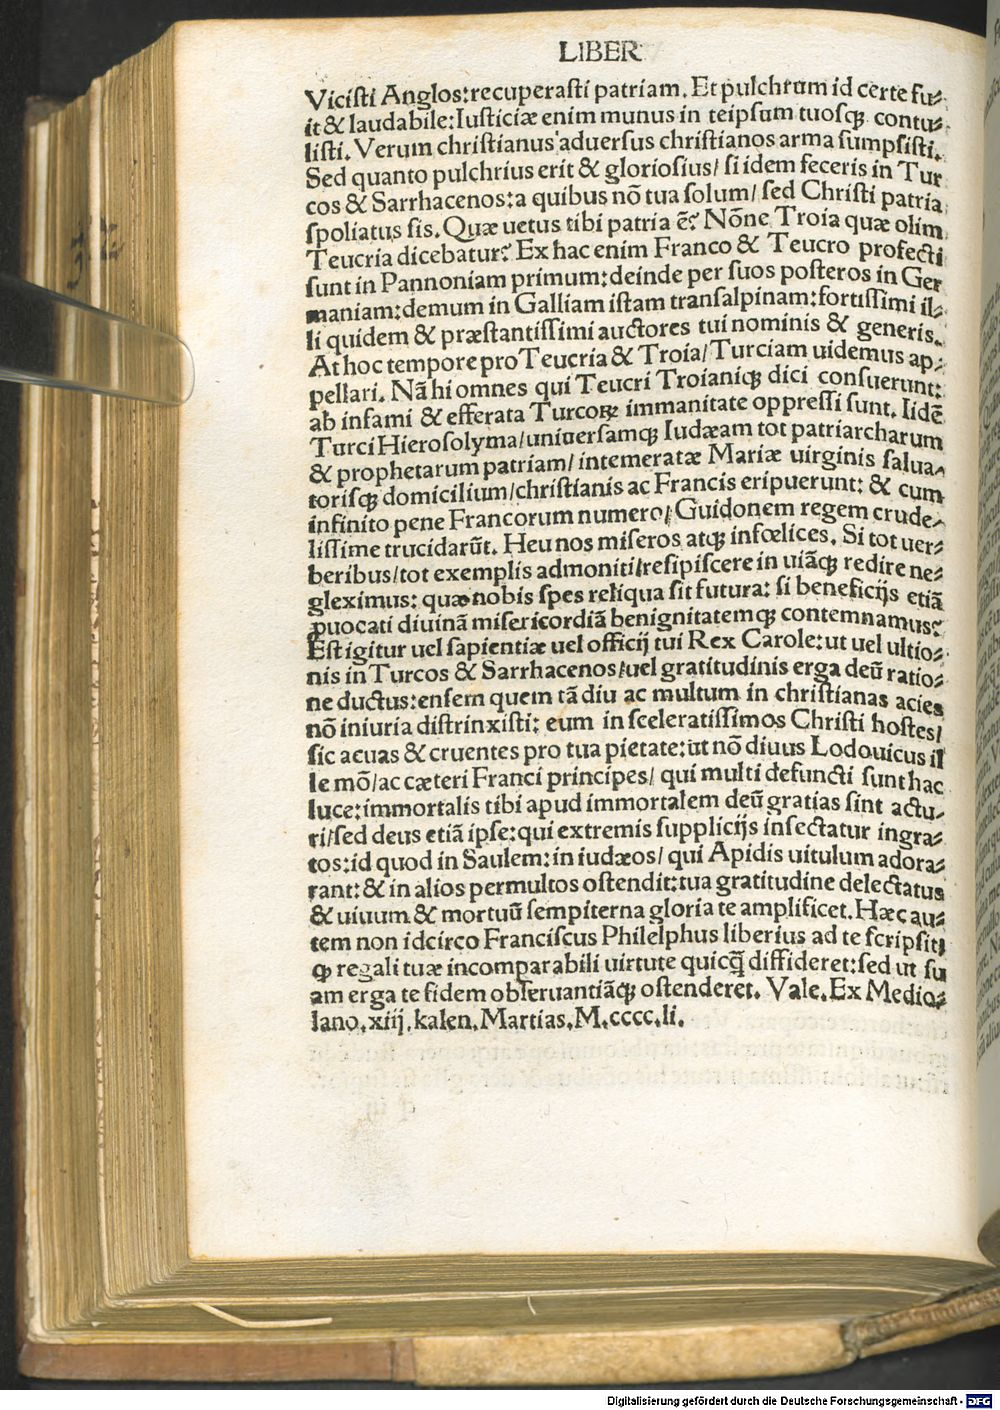 LIBER
Vicisti Anglos:recuperasti patriam. Et pulchrum id certe fu⸗
it & laudabile:Iusticiæ enim munus in teipsum tuosq; contu⸗
listi. Verum christianus aduersus christianos arma sumpsisti.
Sed quanto pulchrius erit & gloriosius/ si idem feceris in Tur
cos & Sarrhacenos:a quibus nõ tua solum/ sed Christi patria
spoliatus sis. Quæ uetus tibi patria ẽ? Nõne Troia quæ olim
Teucria dicebatur? Ex hac enim Franco & Teucro profecti
sunt in Pannoniam primum:deinde per suos posteros in Ger
maniam:demum in Galliam istam transalpinam:fortissimi il⸗
li quidem & præstantissimi auctores tui nominis & generis.
At hoc tempore pro Teucria & Troia/ Turciam uidemus ap⸗
pellari. Nã hi omnes qui Teucri Troianiq; dici consuerunt:
ab infami & efferata Turcoꝝ immanitate oppressi sunt. Iidẽ
Turci Hierosolyma/uniuersamq; Iudæam tot patriarcharum
& prophetarum patriam/ intemeratæ Mariæ uirginis salua⸗
torisq; domicilium/christianis ac Francis eripuerunt: & cum
infinito pene Francorum numero/ Guidonem regem crude⸗
lissime trucidarũt. Heu nos miseros atq; infœlices. Si tot uer⸗
beribus/tot exemplis admoniti/resipiscere in uiãq; redire ne⸗
gleximus: quæ nobis spes reliqua sit futura: si beneficijs etiã
ꝓuocati diuinã misericordiã benignitatemq; contemnamus?
Est igitur uel sapientiæ uel officij tui Rex Carole:ut uel ultio⸗
nis in Turcos & Sarrhacenos/uel gratitudinis erga deũ ratio⸗
ne ductus:ensem quem tã diu ac multum in christianas acies
nõ iniuria distrinxisti: eum in sceleratissimos Christi hostes/
sic acuas & cruentes pro tua pietate:ut nõ diuus Lodouicus il
le mõ/ac cæteri Franci principes/ qui multi defuncti sunt hac
luce:immortalis tibi apud immortalem deũ gratias sint actu⸗
ri/sed deus etiã ipse:qui extremis supplicijs insectatur ingra⸗
tos:id quod in Saulem:in iudæos/ qui Apidis uitulum adora⸗
rant:& in alios permultos ostendit:tua gratitudine delectatus
& uiuum & mortuũ sempiterna gloria te amplificet. Hæc au⸗
tem non idcirco Franciscus Philelphus liberius ad te scripsit/
ꝙ regali tuæ incomparabili uirtute quicq̃ diffideret:sed ut su
am erga te fidem obseruantiãq; ostenderet. Vale. Ex Medio⸗
lano.xiij.kalen.Martias.M.cccc.li.
Digitalisierung gefördert durch die Deutsche Forschungsgemeinschaft - DFG